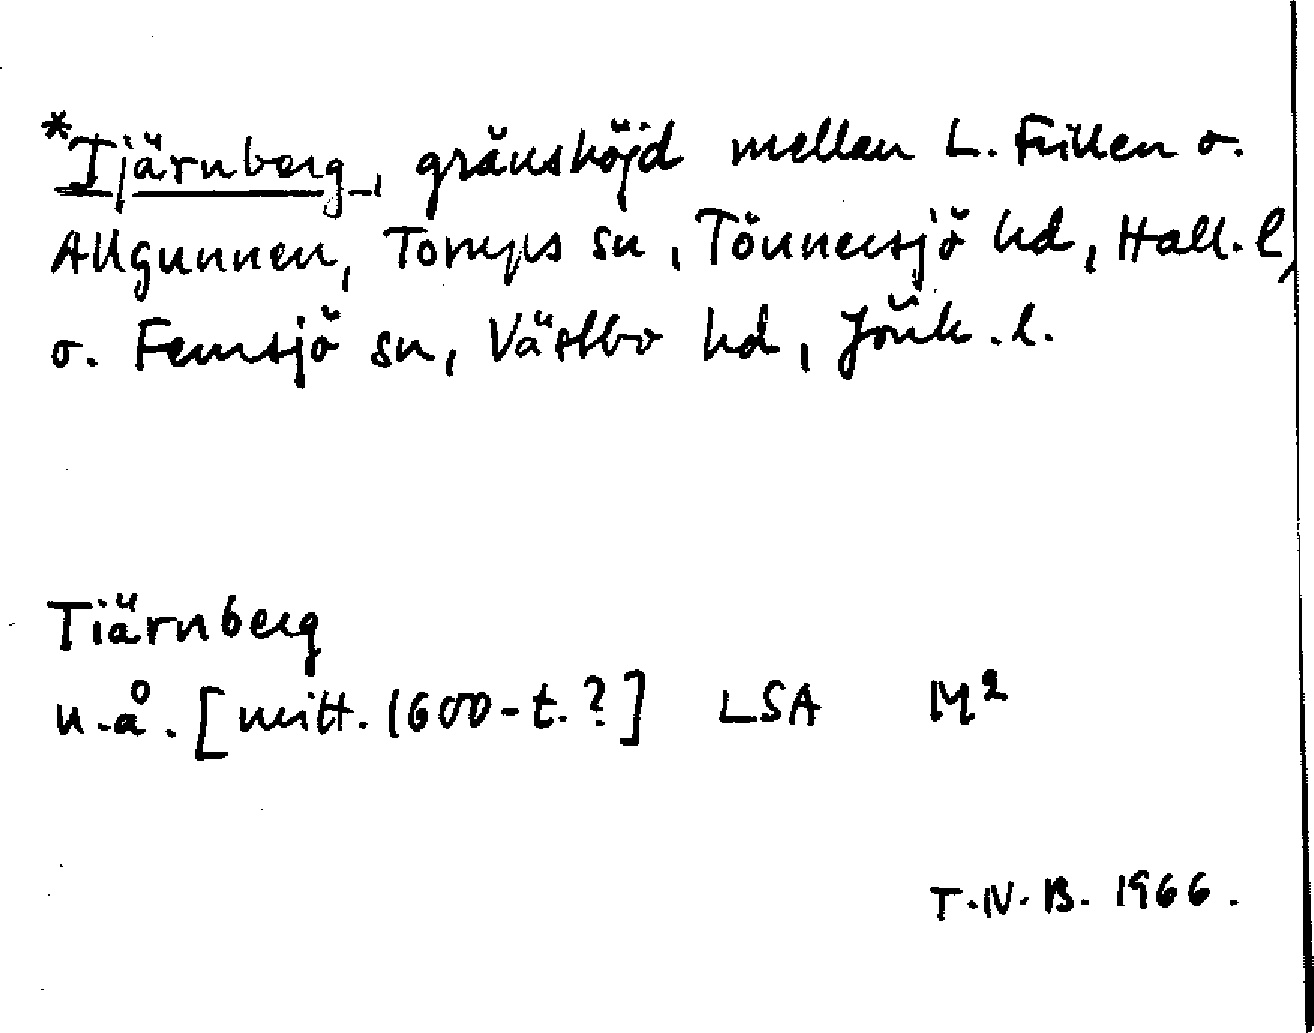 *Tjärnberg, gränshöjd mellan L. Frillen o.
Allgunnen, Torups sn, Tönnersjö hd, Hall. l,
o. Femsjö sn, Västbo hd, Jönk. l.
Tiärnberg
u.å. [mitt. 1600-t.?] LSA M²
T.N.B. 1966.